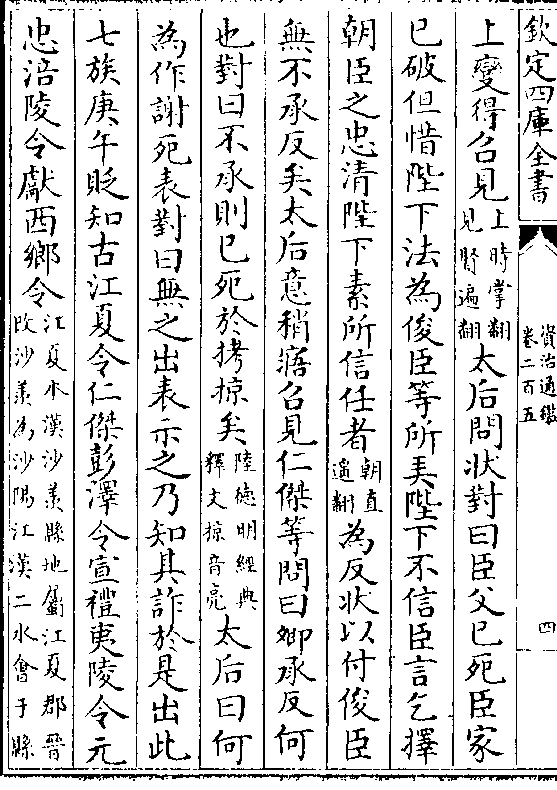 欽定四庫全書
資治通鑑
卷二百五
四
上變得召見上時掌翻見賢遍翻太后問狀對曰臣父已死臣家
已破但惜陛下法為俊臣等所弄陛下不信臣言乞擇
朝臣之忠清陛下素所信任者朝直遥翻為反狀以付俊臣
無不承反矣太后意稍寤召見仁傑等問曰卿承反何
也對曰不承則已死於拷掠矣陸德明經典釋文掠音亮太后曰何
為作謝死表對曰無之出表示之乃知其詐於是出此
七族庚午貶知古江夏令仁傑彭澤令宣禮夷陵令元
忠涪陵令獻西鄉令江夏本漢沙羨縣地屬江夏郡晉改沙羨為沙陽江漢二水會于縣